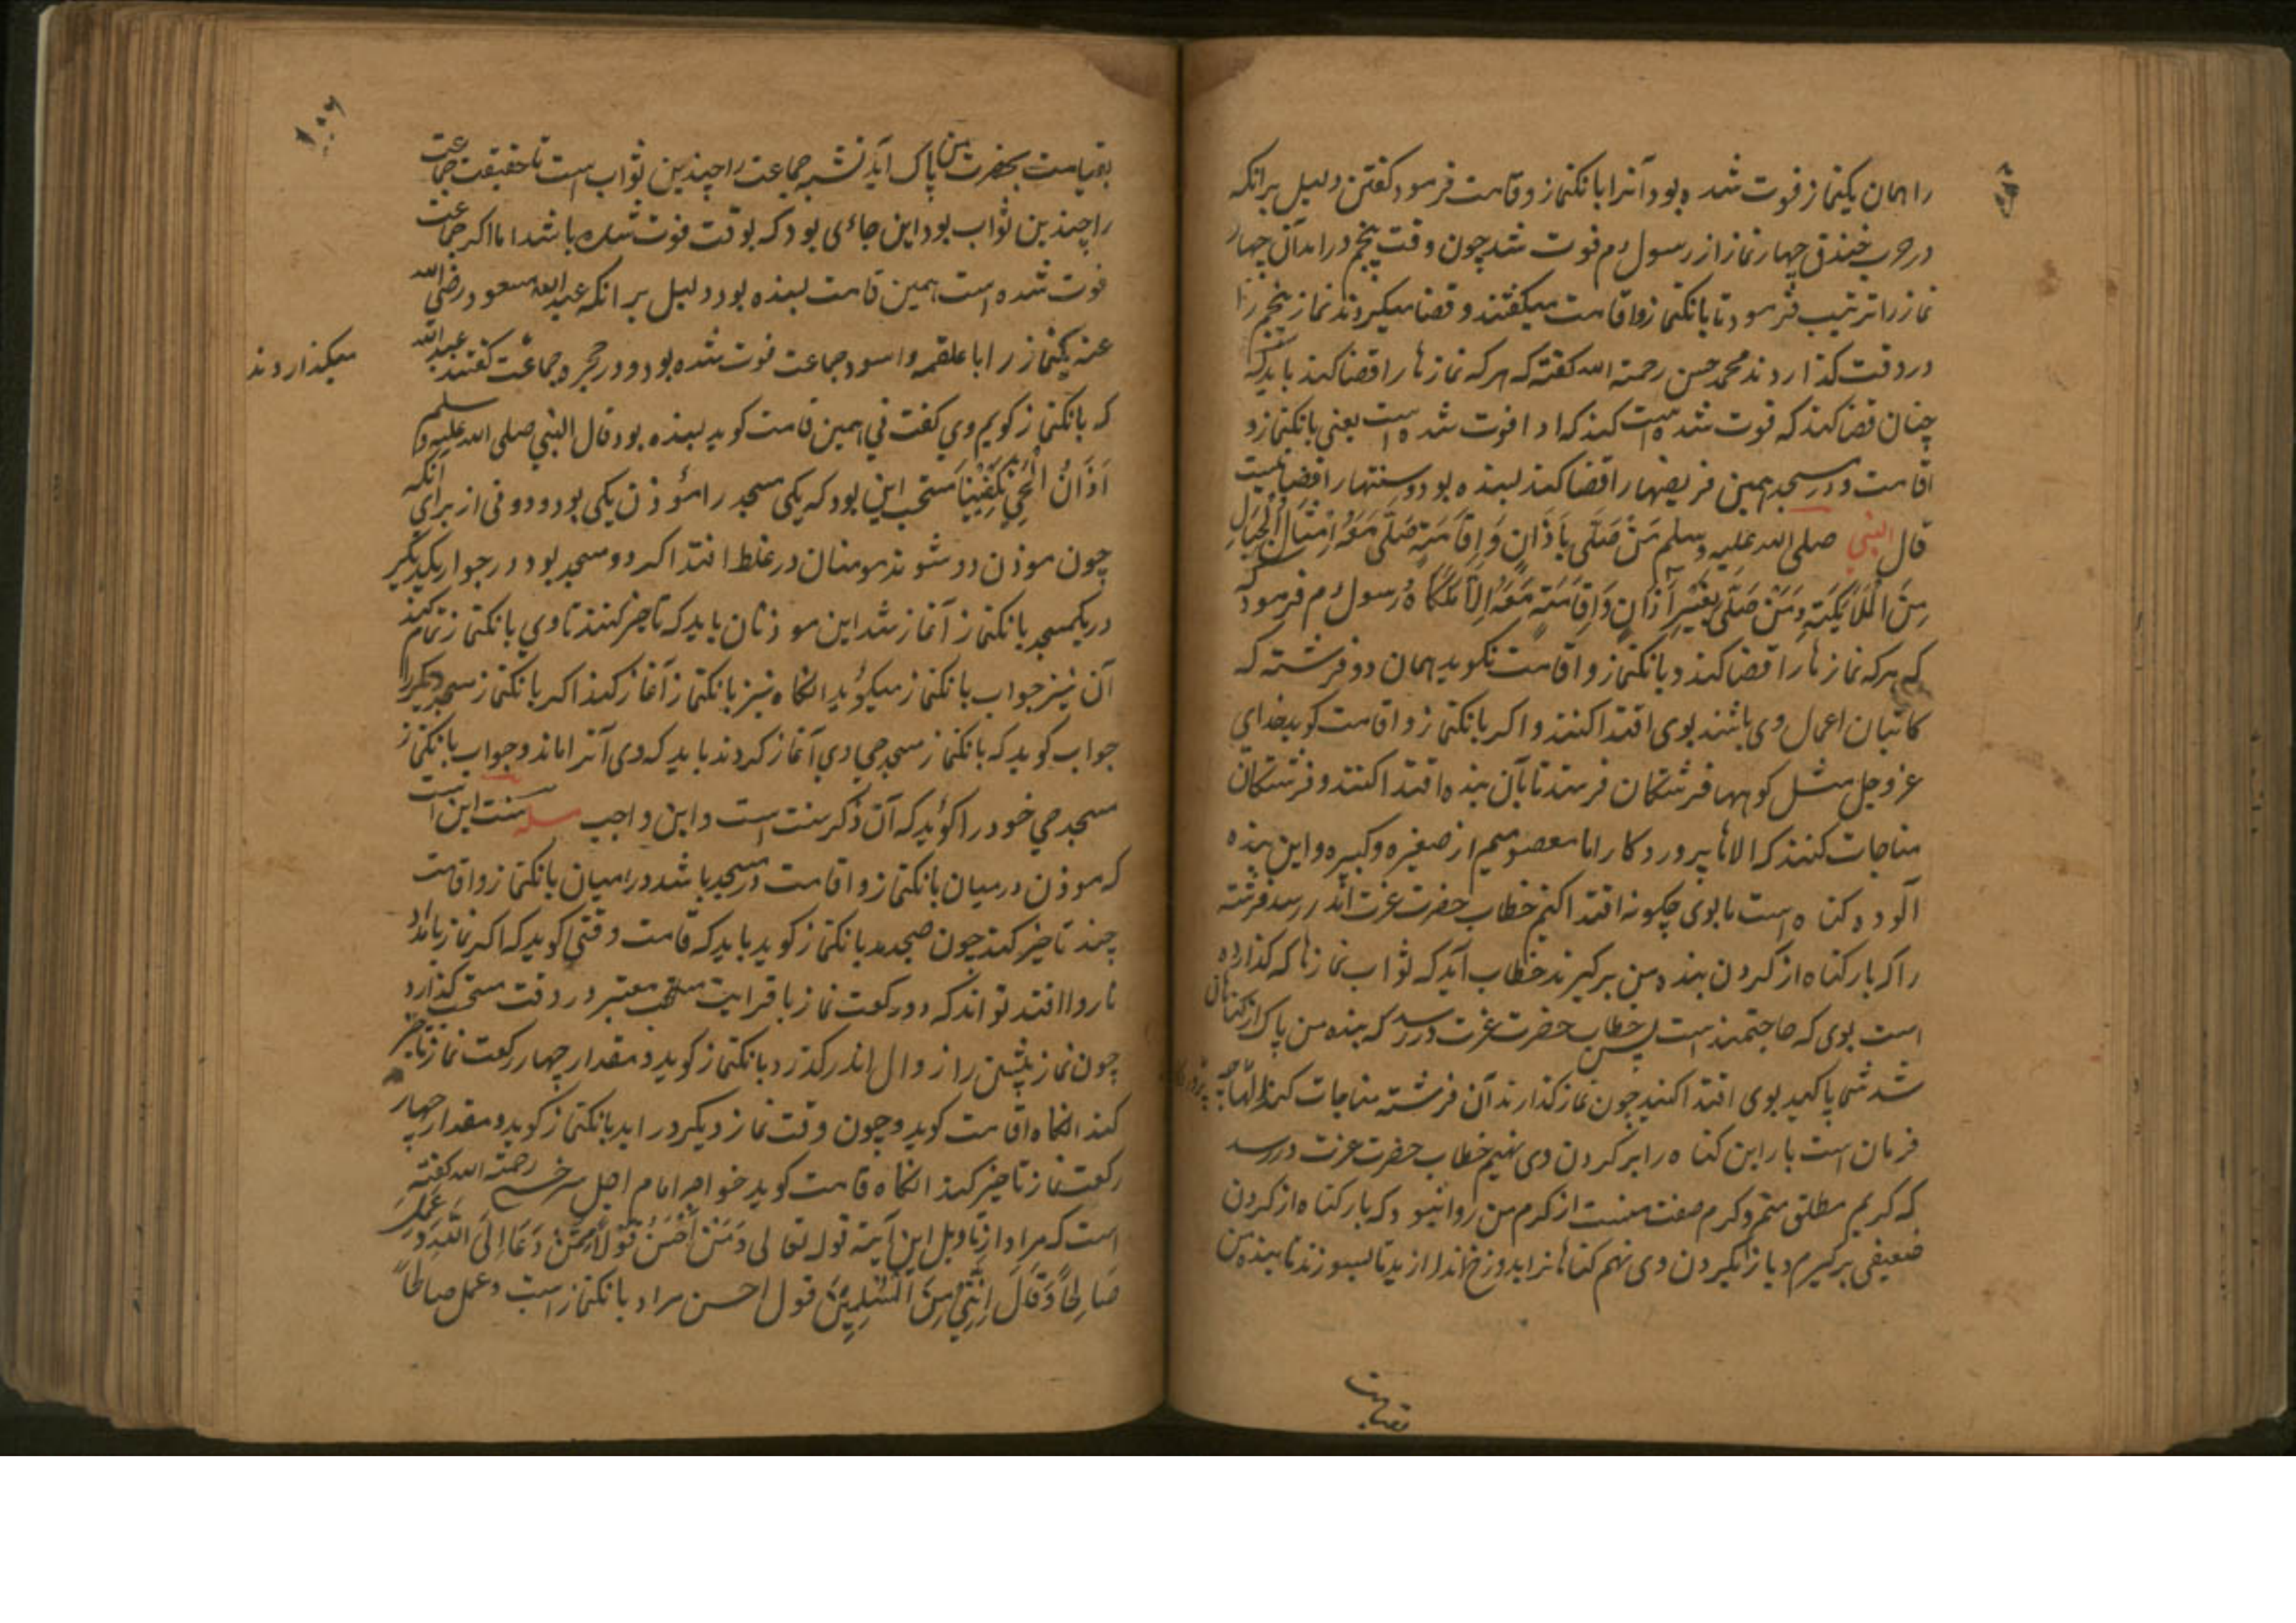 را همان یکنماز فوت شده بود آنرا بانکنماز و قامت فرمود کفتن دلیل برانکه
در حرب خندق چهار نماز از رسول ءم فوت شد چون وقت پنجم درامد آن چهار
نماز را ترتیب فرمود تا بانکنماز و اقامت میکفتند و قضا میکردند نماز پنجم را
در وقت کذاردند محمد حسن رحمة الله کفته که هر که نمازها را قضا کند باید که
چنان قضا کند که فوت شده است کند که ادا فوت شده است یعنی بانکنماز و
اقامت و در مسجد همین فریضهارا قضا کند بسنده بود و سنتهارا قضا نیست
قال النبي صلی الله علیه وسلم مَنْ صَلَّی بِاَذَانٍ وَ اِقَامَتِهٍ صَلَّی مَعَهُ اَمْثَالُ الْجِبَالِ
مِنَ الْمَلَائِکَتِهِ وَمَنْ صَلَّی بِغَیْرِ اَذَانٍ وَاِقَامَتِهٍ مَعَهُ اِلَّا مَلَکَاهُ رسول ءم فرمود
که هر که نمازها را قضا کند و بانکنماز و اقامت نکوید همان دو فرشته که
کاتبان اعمال وی باشند بوی اقتدا کنند و اکر بانکنماز و اقامت کوید خدای
عزوجل مثل کوهها فرشتکان فرستد تا بآن بنده اقتدا کنند و فرشتکان
مناجات کنند که الاها پروردکارا ما معصومیم از صغیره و کبیره و این بنده
آلوده کناه است ما بوی چکونه اقتدا کنیم خطاب حضرت عزت اندر رسد فرشته
را که بار کناه از کردن بنده من برکیرند خطاب آید که ثواب نمازها که کذارده
است بوی که حاجتمند است پس خطاب حضرت عزت در رسد که بنده من پاک از کناهان
شد شما پاکید بوی اقتدا کنید چون نماز کذارند آن فرشته مناجات کند الها
فرمان است بار این کناه را بر کردن وی نهیم خطاب حضرت عزت در رسد
که کریم مطلق منم و کرم صفت منست از کرم من روا نبود که بار کناه از کردن
ضعیفی برکیرم و باز بکردن وی نهم کناهانرا بدوزخ اندازید تا بسوزند تا بنده من
بقیامت
۱۰۶
بقیامت بحضرت من پاک آید نشبه جماعت را چندین ثواب است تا حقیقت جماعت
را چندین ثواب بود این جائی بود که بوقت فوت شده باشد اما اکر جماعت
فوت شده است همین قامت بسنده بود دلیل برانکه عبد الله مسعود رضی الله
عنه یکنماز را با علقمه و اسود جماعت فوت شده بود و در حجره جماعت کفتند عبد الله
میکذاردند
که بانکنماز کویم وي کفت ني همین قامت کوید بسنده بود قال النبي صلی الله علیه وسلم
اَذَانُ الْحَيِّ یَکْفِیْنَا مستحب این بود که یکی مسجد را مؤذن یکی بود و دو نی از برای انکه
چون موذن دو شوند مومنان در غلط افتند اکر دو مسجد بود در جوار یکدیکر
در یکمسجد بانکنماز آغاز شد این موذنان باید که تاخیر کنند تا وي بانکنماز تمام کند
آن نیز جواب بانکنماز میکوید انکاه نیز بانکنماز آغاز کند اکر بانکنماز مسجد دیکر را
جواب کوید که بانکنماز مسجد حي وي آغاز کردند باید که وی آنرا ماند و جواب بانکنماز
مسجد حي خود را کوید که آن ذکر سنت است و این واجب مسله سنت این است
که موذن در میان بانکنماز و اقامت در مسجد باشد در میان بانکنماز و اقامت
چند تاخیر کند چون صبح دمد بانکنماز کوید باید که قامت وقتی کوید که اکر نماز بامداد
ناروا افتد تواند که دو رکعت نماز با قرایت معتبر در وقت مستحب کذارد
چون نماز پیشین را زوال اندر کذرد بانکنماز کوید و مقدار چهار رکعت نماز تاخیر
کند انکاه اقامت کوید و چون وقت نماز دیکر در اید بانکنماز کوید و مقدار چهار
رکعت نماز تاخیر کند انکاه قامت کوید خواجه امام اجل سرخسی رحمة الله کفته
است که مراد از تاویل این آیة قوله تعالی وَمَنْ اَحْسَنُ قَوْلًا مِمَّنْ دَعَا اِلَی اللّٰهِ وَ عَمِلَ
صَالِحًا وَّقَالَ اِنَّنِيْ مِنَ الْمُسْلِمِیْنَ قول احسن مراد بانکنماز است و عمل صالحاً